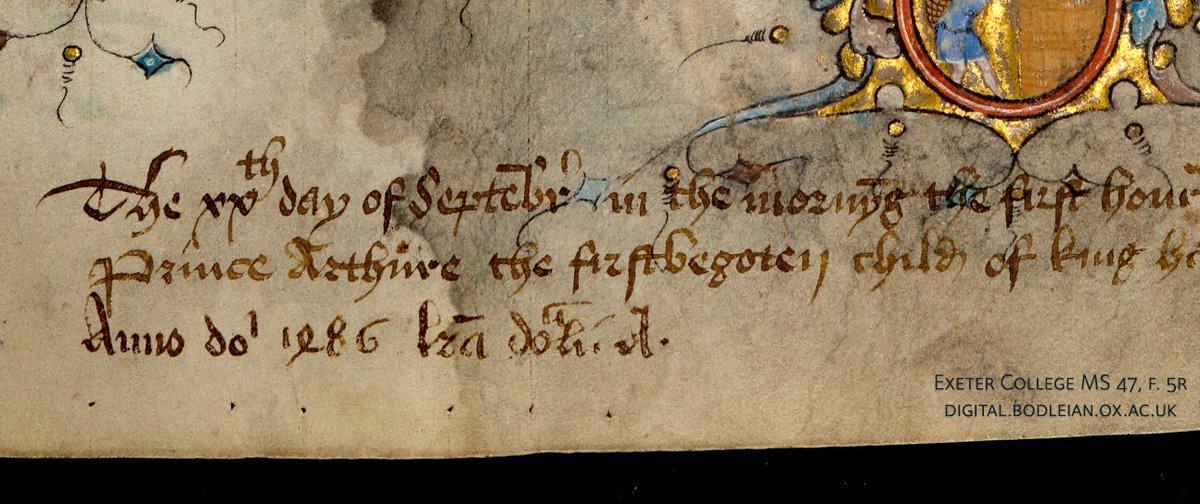 The xxth day of Septēbr in the mornyg the first hour
Prince Arthure the firstbegoten child of king he
Anno do 1486 lr̄a
EXETER COLLEGE MS 47, F. 5R
DIGITAL.BODLEIAN.OX.AC.UK